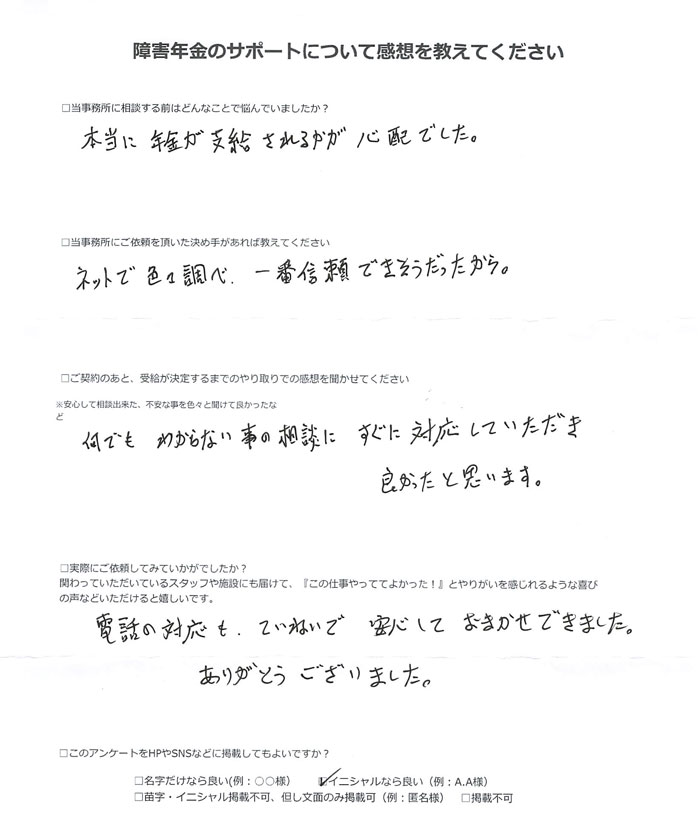 障害年金のサポートについて感想を教えてください
□当事務所に相談する前はどんなことで悩んでいましたか？
本当に年金が支給されるかが心配でした。
□当事務所にご依頼を頂いた決め手があれば教えてください
ネットで色々調べ、一番信頼できそうだったから。
□ご契約のあと、受給が決定するまでのやり取りでの感想を聞かせてください
※安心して相談出来た、不安な事を色々と聞けて良かったな
ど
何でもわからない事の相談にすぐに対応していただき
良かったと思います。
□実際にご依頼してみていかがでしたか？
関わっていただいているスタッフや施設にも届けて、『この仕事やっててよかった！』とやりがいを感じれるような喜び
の声などいただけると嬉しいです。
電話の対応も、ていねいで安心しておまかせできました。
ありがとうございました。
□このアンケートをHPやSNSなどに掲載してもよいですか？
□名字だけなら良い(例：〇〇様） ☑イニシャルなら良い（例：A.A様）
□苗字・イニシャル掲載不可、但し文面のみ掲載可（例：匿名様） □掲載不可